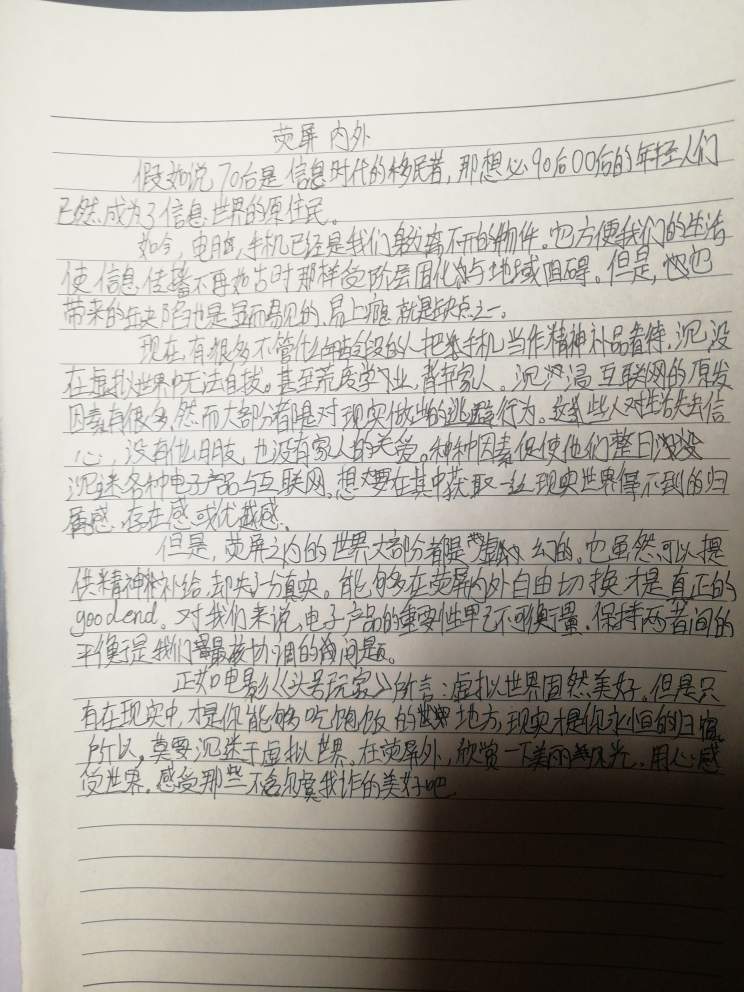 荧屏内外
假如说70后是信息时代的移民者,那想必90后00后的年轻人们
已然成为了信息世界的原住民。
如今,电脑,手机已经是我们身边离不开的物件。它方便我们的生活
使信息传播不再如古时那样受阶层固化与地域阻碍。但是,它
带来的缺陷也是显而易见的,易上瘾就是缺点之一。
现在,有很多不管什么年龄段的人把手机当作精神补品看待,沉没
在虚拟世界中无法自拔。甚至荒废学业,背弃家人。沉湎互联网的原发
因素有很多,然而大部分都是对现实做出的逃避行为。这些人对生活失去信
心,没有什么朋友,也没有家人的关爱。种种因素促使他们整日
沉迷各种电子产品与互联网,想要在其中获取一丝现实世界得不到的归
属感,存在感或优越感。
但是,荧屏之内的世界大部分都是虚幻的。它虽然可以提
供精神补给,却失了分真实。能够在荧屏内外自由切换才是真正的
goodend。对我们来说,电子产品的重要性早已不可衡量,保持两者间的
平衡是我们最该协调的问题。
正如电影《头号玩家》所言:虚拟世界固然美好。但是只
有在现实中,才是你能够吃饱饭的地方,现实才是你永恒的归宿。
所以,莫要沉迷于虚拟世界,在荧屏外,欣赏一下美丽风光。用心感
受世界,感受那些不会尔虞我诈的美好吧